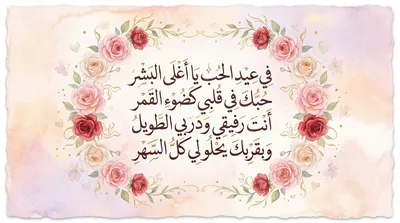 في عيد الحب يا أغلى البشر
حبك في قلبي كضوء القمر
أنت رفيقي ودربي الطويل
وبقربك يحلو لي كل السهر